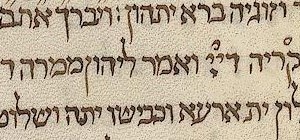 וזוגיה ברא יתהון : ויברך אתם
קריה דייי ואמר ליהון ממרה ד
לון ית ארעא וכבישו יתה ושלוט